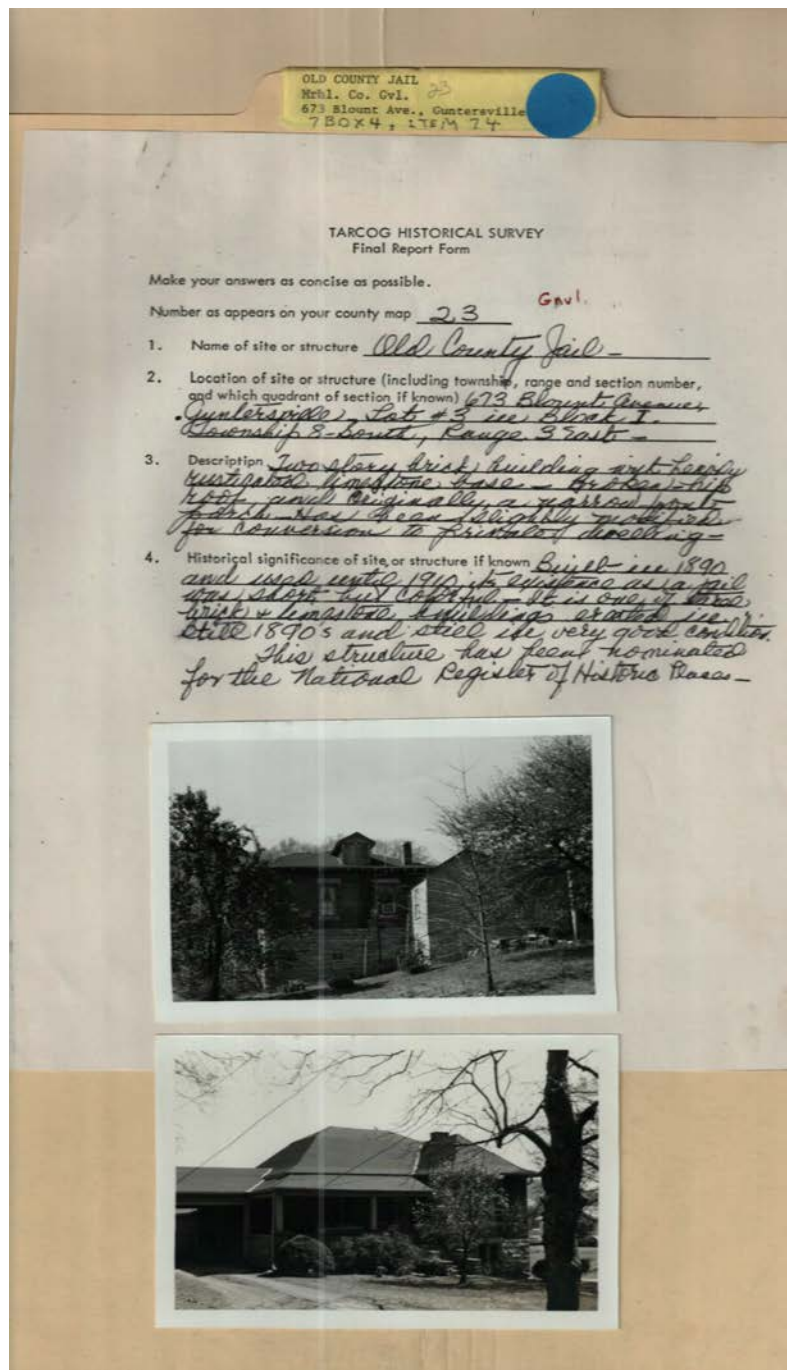 OLD COUNTY JAIL
Mrhl. Co. Gvl. 23
673 Blount Ave., Guntersville
7BOX4, ITEM 74
TARCOG HISTORICAL SURVEY
Final Report Form
Make your answers as concise as possible.
Gnvl.
Number as appears on your county map 23
1. Name of site or structure Old County Jail -
2. Location of site or structure (including township, range and section number,
and which quadrant of section if known) 673 Blount Avenue,
Guntersville, Lot #3 in Block I.
Township 8-South, Range 3 East -
3. Description Two story brick building with heavily
rusticated limestone base - Broken-hip
roof, and originally a narrow front
porch - Has been slightly modified
for conversion to private dwelling -
4. Historical significance of site, or structure if known Built in 1890
and used until 1910 its existence as a jail
was short but colorful - It is one of three
brick & limestone buildings erected in
still 1890's and still in very good condition.
This structure has been nominated
for the National Register of Historic Places -